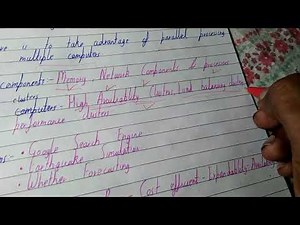 to take advantage of parallel processing
multiple computers
components - Memory, Network Components & processor
clusters
computers - High Availability Clusters, Load balancing cluster
performance clusters
• Google Search Engine
• Earthquake Simulation
• Whether Forecasting
Cost efficient - Expandability, Availability